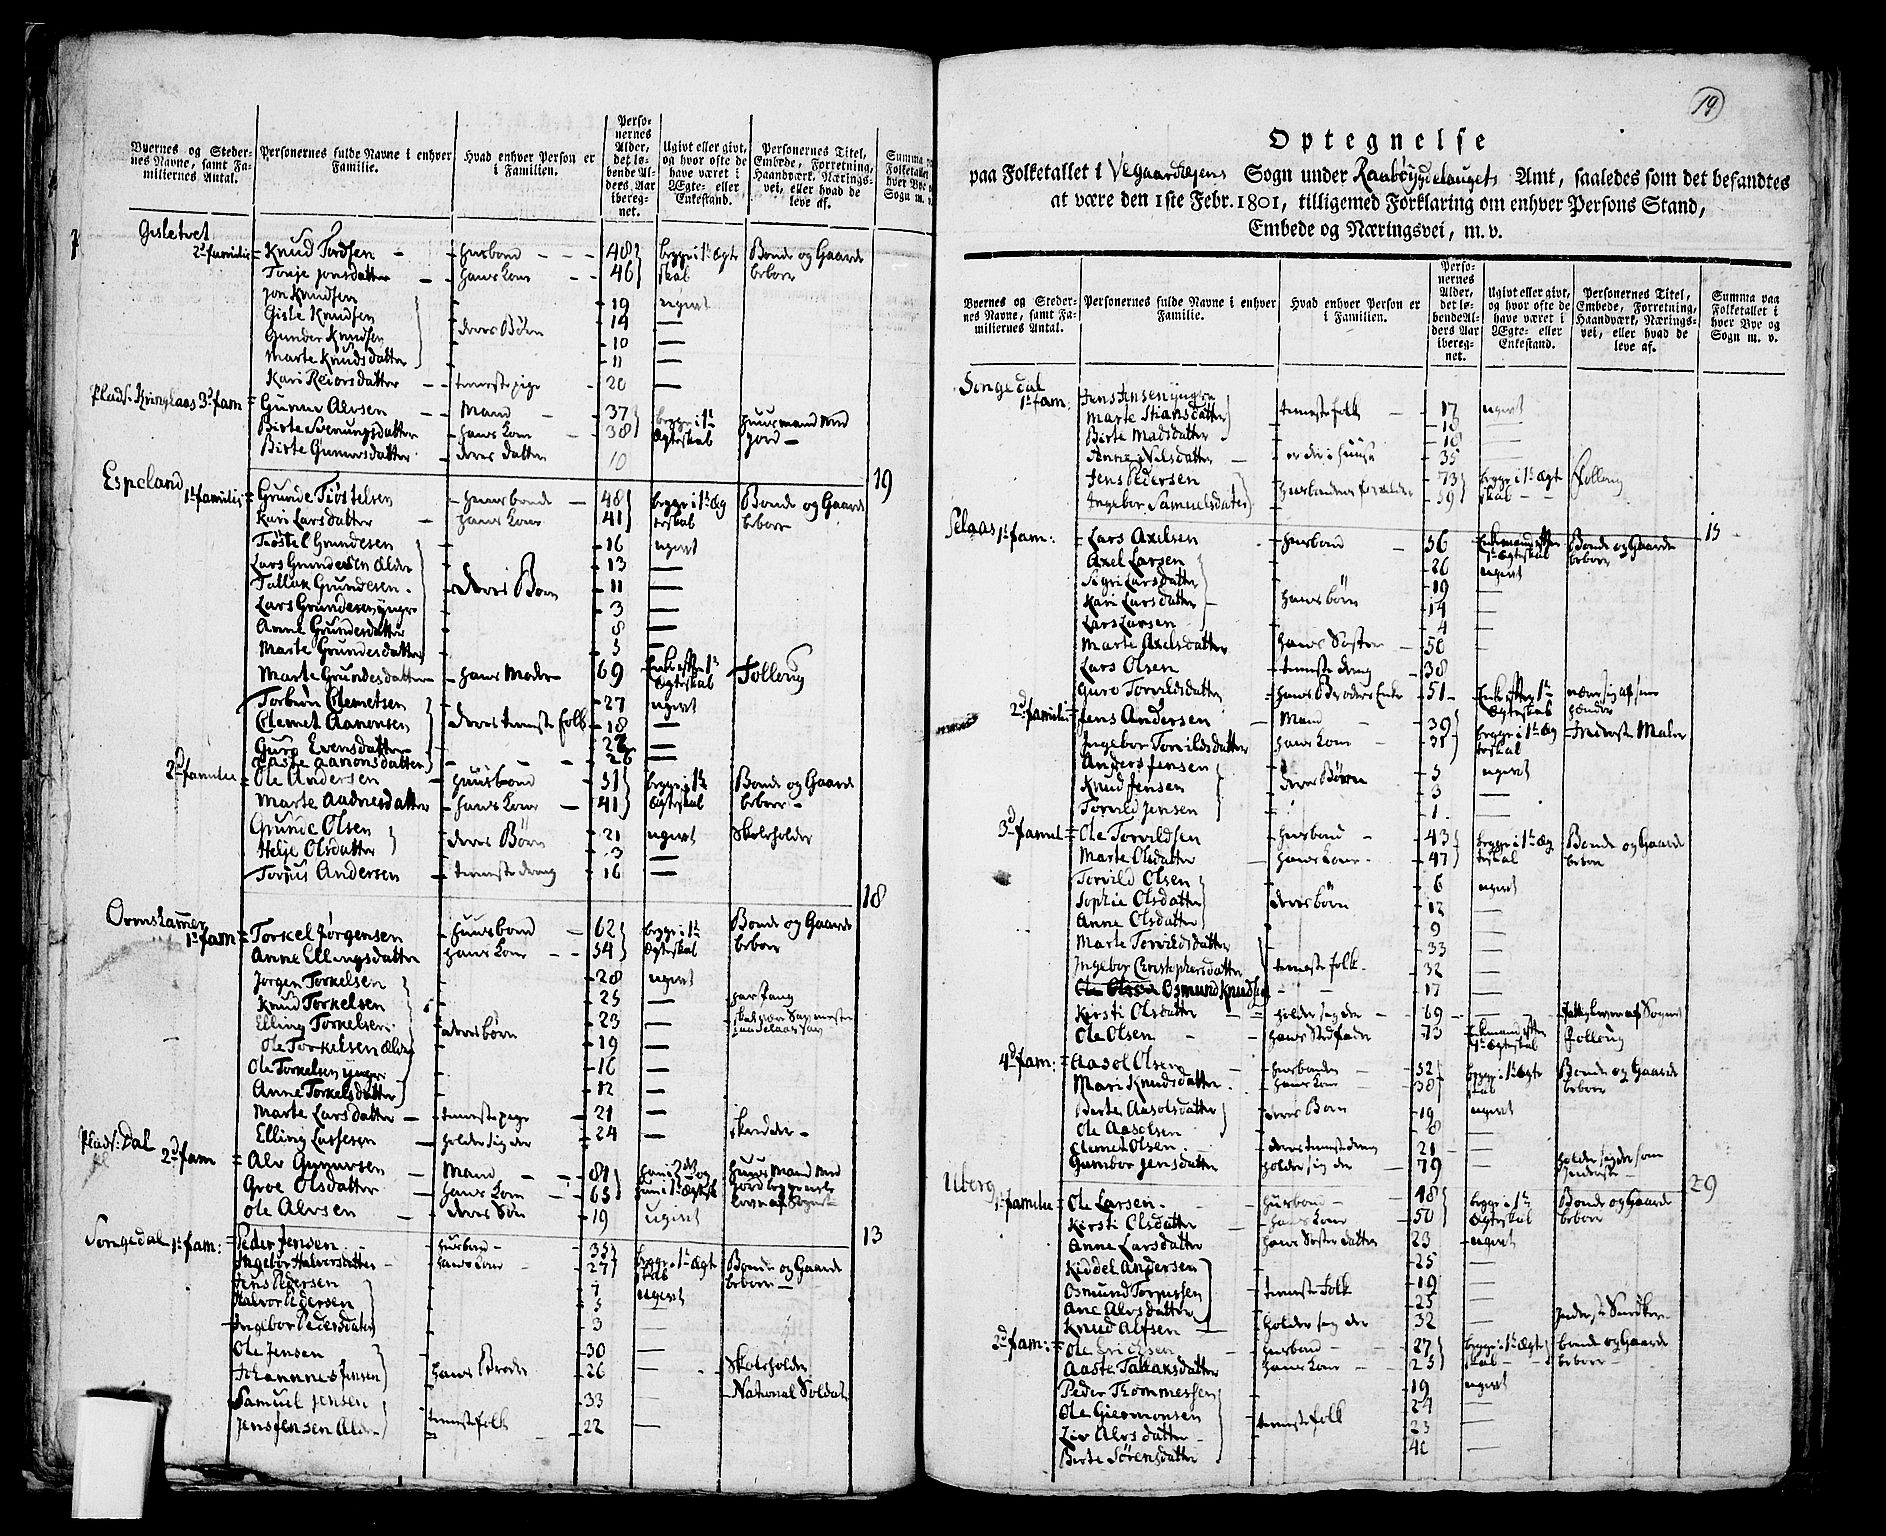 Byernes og Steder-
nes Navne, samt Fa-
miliernes Antal.
Personernes fulde Navne i enhver
Familie.
Hvad enhver Person er
i Familien.
Perso-
nernes
Alder,
det lø-
bende Al-
ders Aar
ibereg-
net.
Ugivt eller givt,
og hvor ofte de
have været i
Ægte- eller
Enkestand.
Personernes Titel,
Embede, Forretning,
Haandværk, Nærings-
vei, eller hvad de
leve af.
Summa paa
Folketallet i
hver Bye og
Sogn m. v.
Gisletvet
2d familie Knud Tordsen husbond 48 begge i 1t Ægte Bonde og Gaard
Tonje Jonsdatter hans Kone 46 skab beboer
Jon Knudsen 19 ugivt
Gisle Knudsen 14
Gunder Knudsen deres Børn 10
Marte Knudsdatter 11
Kari Reiersdatter tienestepige 20
Plads 3d fam
Alvsen Mand 37 begge i 1t huusmand med
Birte datter hans Kone 38 Ægteskab jord
Birte datter deres datter 10
19
Espeland
1t familie Grunde Tiøstelsen huusbonde 48 begge i 1t Æg Bonde og Gaard
Kari Larsdatter hans Kone 41 teskab beboer
Tiøstel Grundesen 16 ugivt
Lars Grundesen Ældre 13
Tallak Grundesen deres Børn 11
Lars Grundesen yngre 3
Anne Grundesdatter 8
Marte Grundesdatter 5
Marte Grundesdatter hans Moder 69 Enke efter 1t Ægteskab Følloug
Torbiøn Clemetsen 27 ugivt
Clemet Aanonsen deres tieneste folk 18
Guro Evensdatter 22
Aaste Aanonsdatter 26
2d familie Ole Andersen huusbond 51 begge i 1t Bonde og Gaard
Marte Aadnesdatter hans Kone 41 Ægteskab beboer
Grunde Olsen 21 ugivt Skoleholder
Helje Olsdatter deres Børn 13
Torjus Andersen tienestedreng 16
18
Ormskammer
1t fam Torkel Jørgensen huusbond 62 begge i 1t Bonde og Gaard
Anne Ellingsdatter hans Kone 54 Ægteskab beboer
Jørgen Torkelsen 28 ugivt
Knud Torkelsen 25
Elling Torkelsen 23
deres børn
Ole Torkelsen Ældre 19
Ole Torkelsen yngre 16
Anne Torkelsdatter 12
Marte Larsdatter tienestepige 21
Elling Lassesen holder sig der 24
Plads Dal
2d fam Alv Gunnersen Mand 81 huus mand med
Groe Olsdatter hans Kone 65
Ole Alvsen deres Søn 19 ugivt
13
Songedal 1t fam: Peder Jensen husbond 35 begge i 1t Ægt Bonde og Gaard
Ingebor Halvorsdatter hans Kone 27 skab beboer
Jens Pedersen 7 ugivt
Halvor Pedersen 5
Ingebor Pedersdatter 3
Ole Jensen 30
Johannes Jensen hans Brødre 26 Skoleholder
Samuel Jensen 33 National Soldat
Jens Jensen Ældr tienestefolk 22
19
Optegnelse
paa Folketallet i Vegaardsejens Sogn under Raabøygdelaugets Amt, saaledes som det befandtes
at være den 1ste Febr. 1801, tilligemed Forklaring om enhver Persons Stand,
Embede og Næringsvei, m. v.
Byernes og Steder-
nes Navne, samt Fa-
miliernes Antal.
Personernes fulde Navne i enhver
Familie.
Hvad enhver Person er
i Familien.
Perso-
nernes
Alder,
det lø-
bende Al-
ders Aar
ibereg-
net.
Ugivt eller givt,
og hvor ofte de
have været i
Ægte- eller
Enkestand.
Personernes Titel,
Embede, Forretning,
Haandværk, Nærings-
vei, eller hvad de
leve af.
Summa paa
Folketallet i
hver Bye og
Sogn m. v.
Songedal
1t fam. Jens Jensen yngre 17 ugivt
Marte Stiansdatter tienestefolk 18
Birte Madsdatter 18
Anne Nilsdatter er der i huuse 35
Jens Pedersen 73 begge i 1t Ægt Følloug
Ingebor Samuelsdatter husbondens forældre 59 skab
15
Selaas 1t fam: Lars Axelsen husbond 56 Enkemand efter 1t Ægteskab Bonde og Gaard beboer
Axel Larsen 26 ugivt
Sigri Larsdatter 19
Kari Larsdatter hans børn 14
Lars Larsen 4
Marte Axelsdatter hans Søster 50
Lars Olsen tieneste dreng 38
Guro Torvildsdatter hans Broders Enke 51 Enke efter 1t Ægteskab nær sig af sine hænder
2d familie Jens Andersen Mand 39 begge i 1t Æg Inderste Maler
Ingebor Torvildsdatter hans Kone 31 teskab
Anders Jensen 5 ugivt
Knud Jensen deres Børn 3
Torvild Jensen 1
3d famil Ole Torvildsen husbond 43 begge i 1t Æg Bonde og Gaard
Marte Olsdatter hans Kone 47 teskab beboer
Torvild Olsen 6 ugivt
Sophie Olsdatter deres børn 12
Anne Olsdatter 9
Marte Torvildsdatter 33
Ingebor Christophersdatter tieneste folk 32
Ole Olsen Osmund Knudsen 17
Kirsti Olsdatter holder sig der 69
Ole Olsen hans Stedfader 73 Enkemand efter 1t Ægteskab Følloug
4d fam: Aasol Olsen husbonden 52 begge i 1t Ægte Bonde og Gaard
Mari Knudsdatter hans Kone 38 skab beboer
Berte Aasolsdatter deres Børn 19 ugivt
Ole Aasolsen 8
Clemet Olsen deres tienestedreng 21
Gumbor Jensdatter holder sig der 79
29
Uberg
1t familie Ole Larsen husbond 48 begge i 1t Bonde og Gaard
Kirsti Olsdatter hans Kone 50 Ægteskab beboer
Anne Larsdatter hans Søster datter 23 ugivt
Kiddel Andersen 25
Osmund Torjussen tieneste Folk 19
Ane Alvsdatter 25
Knud Alfsen holder sig der 32
2d fam: Ole Erichsen husbond 27 begge i 1t Ægt bonde og Gaard
Aaste Tallaksdatter hans Kone 25 skab beboer
Peder Thommessen 19 ugivt
Ole Giermonsen tienestefolk 24
Liv Alvsdatter 23
Birte Sørensdatter